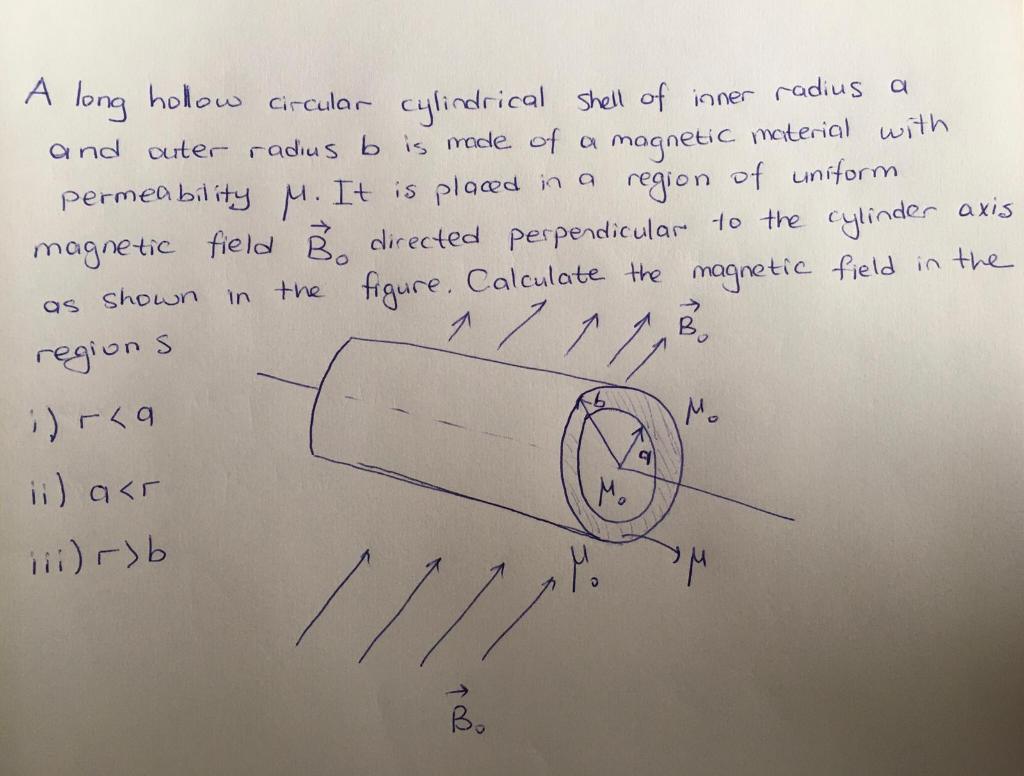 A long hollow circular cylindrical shell of inner radius a
and outer radius b is made of a magnetic material with
permeability μ. It is placed in a region of uniform
magnetic field B⃗₀ directed perpendicular to the cylinder axis
as shown in the figure. Calculate the magnetic field in the
regions
B⃗₀
i) r<a
b
μ₀
a
ii) a<r
μ₀
iii) r>b
μ₀
μ
B⃗₀